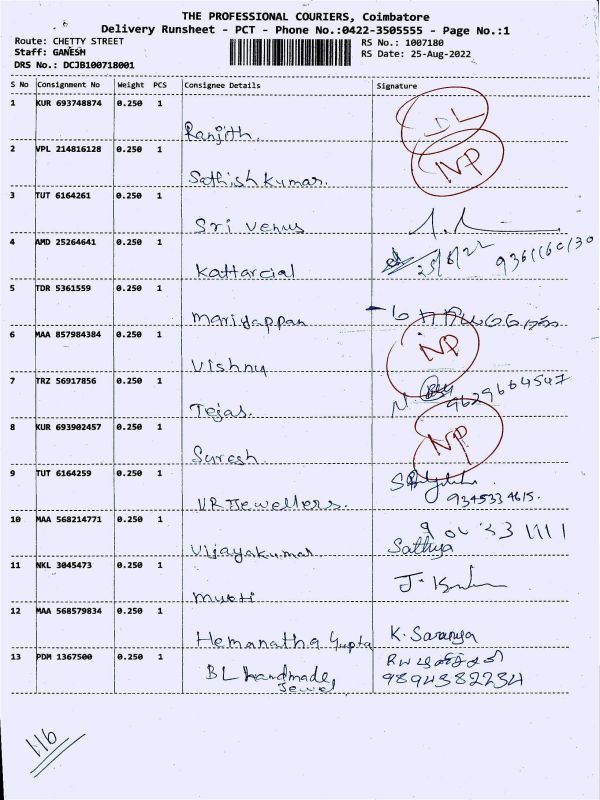 THE PROFESSIONAL COURIERS, Coimbatore
Delivery Runsheet - PCT - Phone No.:0422-3505555 - Page No.:1
Route: CHETTY STREET
RS No.: 1007180
Staff: GANESH
RS Date: 25-Aug-2022
DRS No.: DCJB100718001
S No Consignment No Weight PCS Consignee Details Signature
1 KUR 693748874 0.250 1 Ranjith. DL
2 VPL 214816128 0.250 1 Sathishkumar. NP
3 TUT 6164261 0.250 1 Sri Venus
4 AMD 25264641 0.250 1 Kattarcial 25/8/22
5 TDR 5361559 0.250 1 Mariyappan
6 MAA 857984384 0.250 1 Vishnu NP
7 TRZ 56917856 0.250 1 Tejas. 9629664547
8 KUR 693902457 0.250 1 Suresh. NP
9 TUT 6164259 0.250 1 VR Jewellers. 9345334615.
10 MAA 568214771 0.250 1 Vijayakumar Sathya
11 NKL 3045473 0.250 1 J.
12 MAA 568579834 0.250 1 Hemanatha Gupta K. Saranya
13 PDM 1367500 0.250 1 BL handmade Jewel 9894382234
116